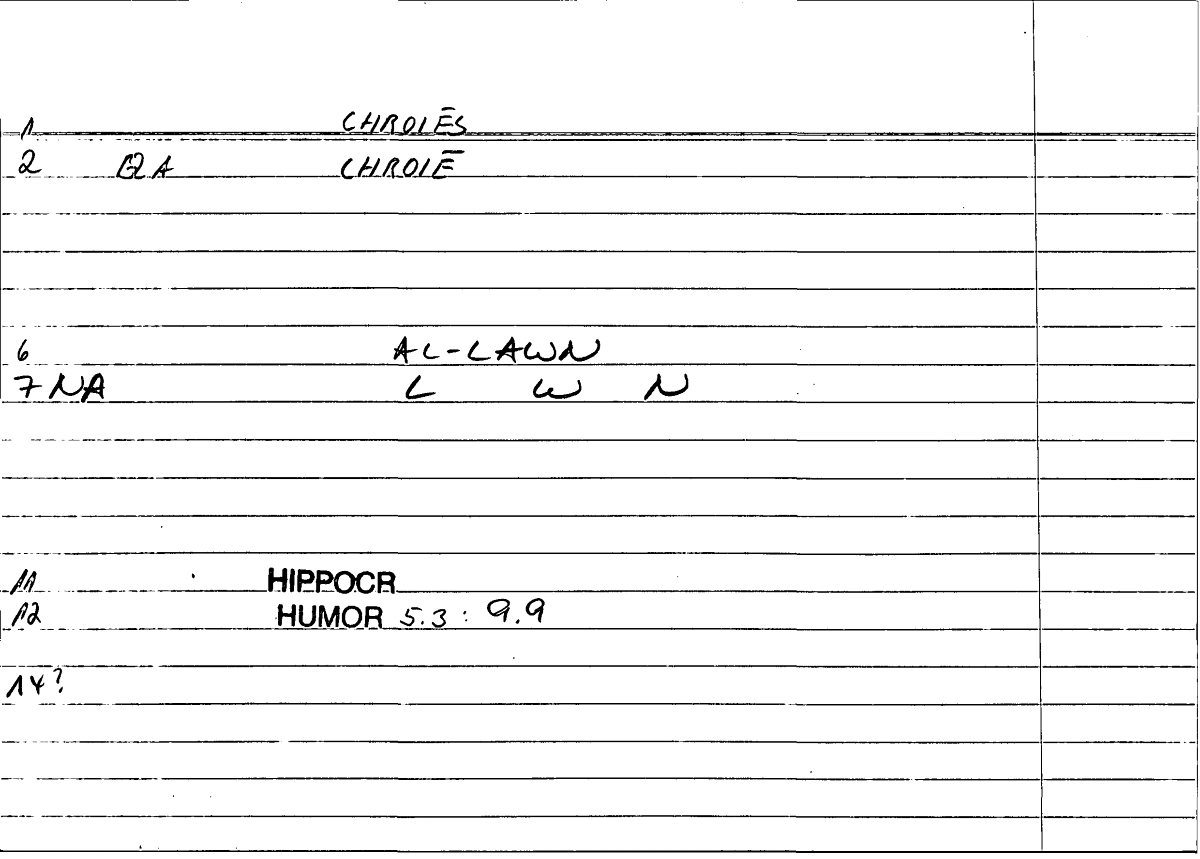 1 CHROIĒS
2 QA CHROIĒ
6 AL-LAWN
7 NA L W N
11 HIPPOCR
12 HUMOR 5.3 : 9.9
14?